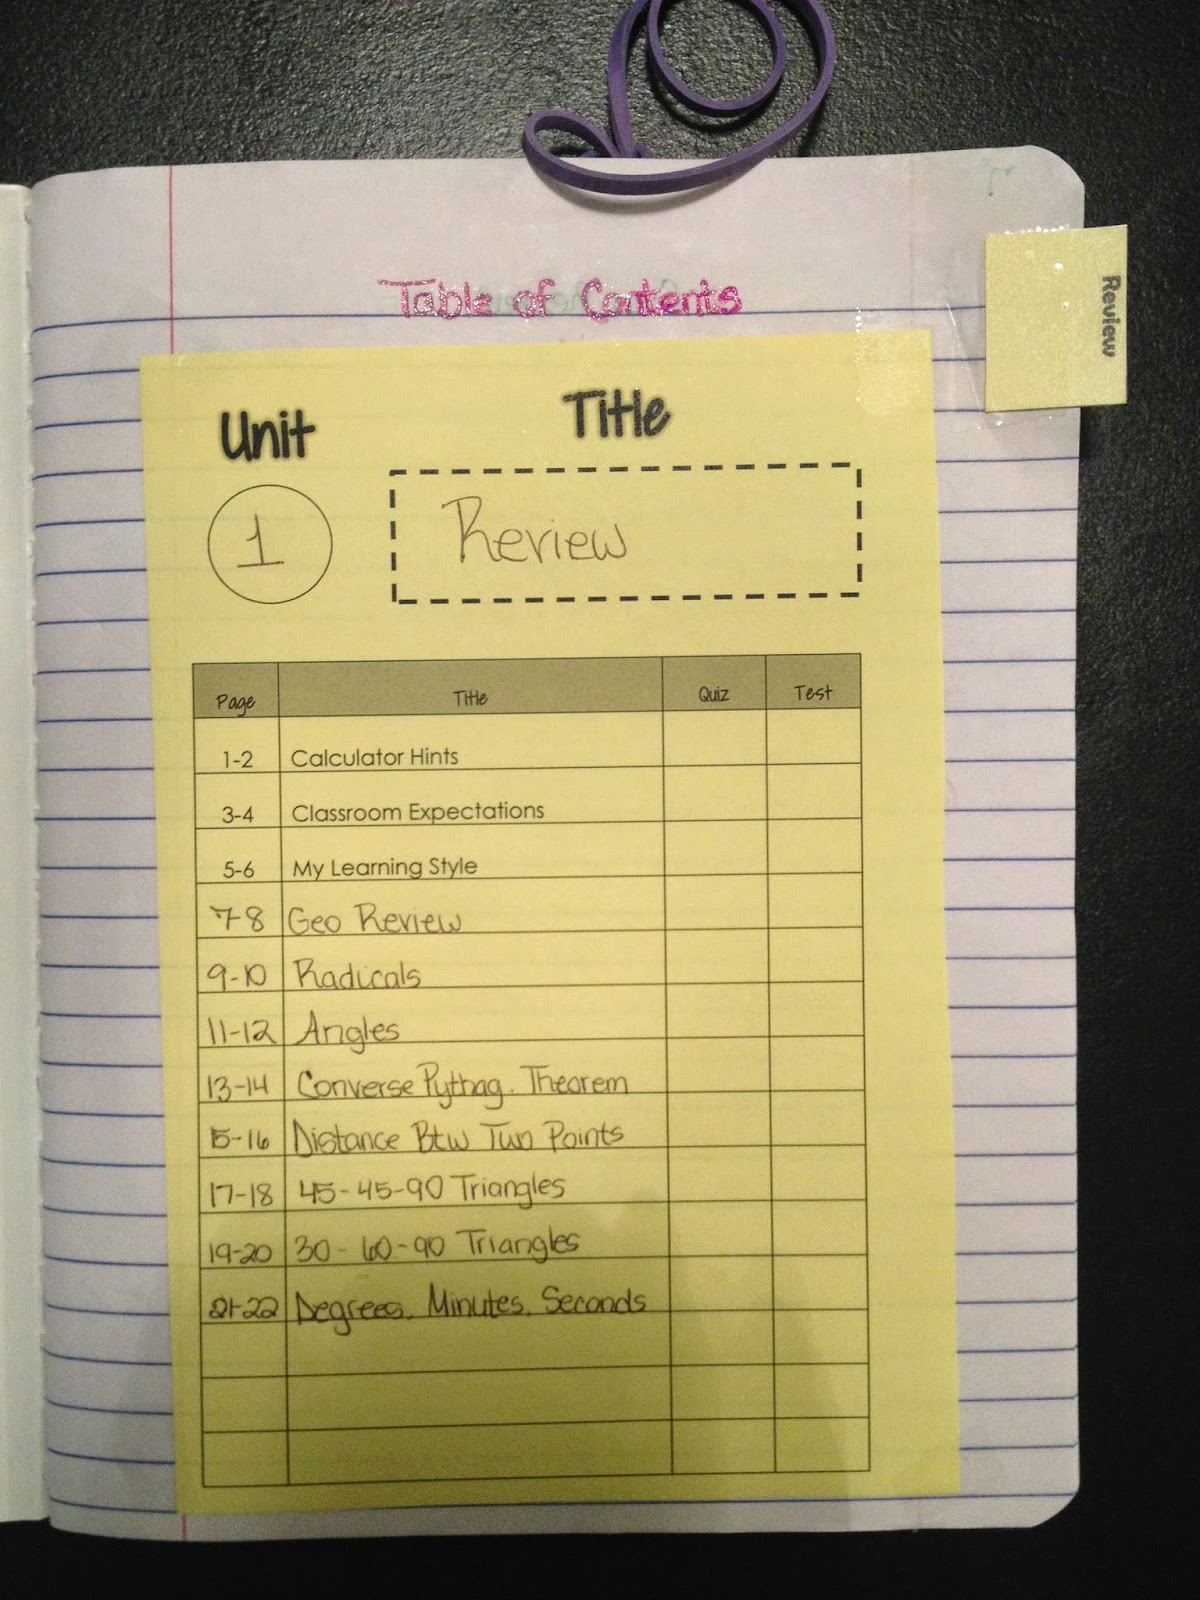 Table of Contents
Review
Unit Title
1 Review
Page Title Quiz Test
1-2 Calculator Hints
3-4 Classroom Expectations
5-6 My Learning Style
7-8 Geo Review
9-10 Radicals
11-12 Angles
13-14 Converse Pythag. Theorem
15-16 Distance Btw Two Points
17-18 45-45-90 Triangles
19-20 30-60-90 Triangles
21-22 Degrees, Minutes, Seconds